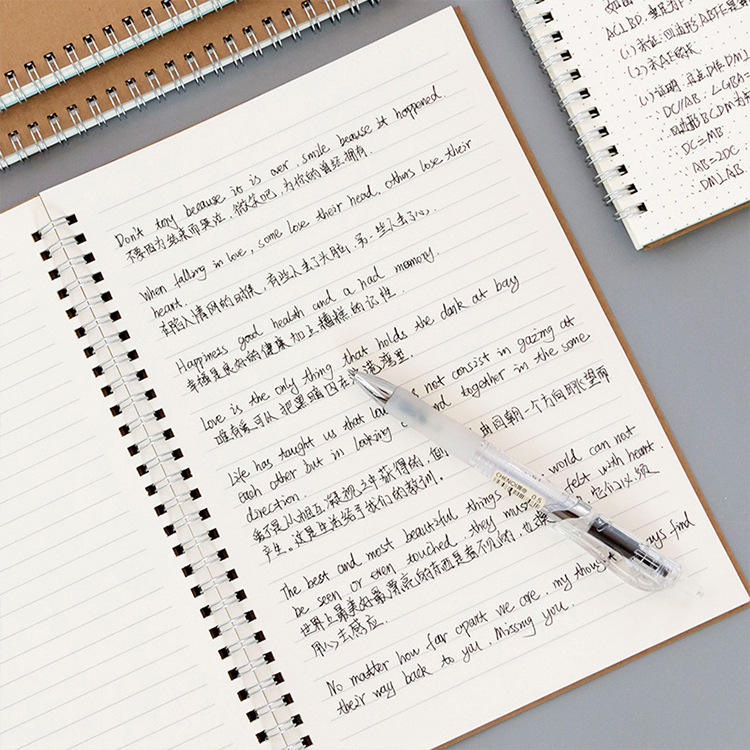 Don't tory because it is over, smile because it happened.
不要因为结束而哭泣,微笑吧,为你的曾经拥有.
When falling in love, some lose their head, others lose their
heart.
在陷入情网的时候,有些人丢了头脑,另一些人丢了心.
Happiness good health and a had memory.
幸福是良好的健康加上糟糕的记性.
Love is the only thing that holds the dark at bay
唯有爱可以把黑暗囚在港湾里.
Life has taught us that love not consist in gazing at
each other but in looking together in the same
direction.
由同朝一个方向眺望而
产生。这是生活给予我们的教训。
The best and most beautiful things world can not
be seen or even touched, they must felt with heart.
世界上最美好最漂亮的东西是看不见的, 它们必须
用心去感应.
No matter how far apart we are, my thought find
their way back to you. Missing you.
AC⊥BD,
(1)求证:四边形ABFE是
(2)求AE的长
DC//AB,
DC=MB
AB=2DC
DM⊥AB
CHENQI
0.5